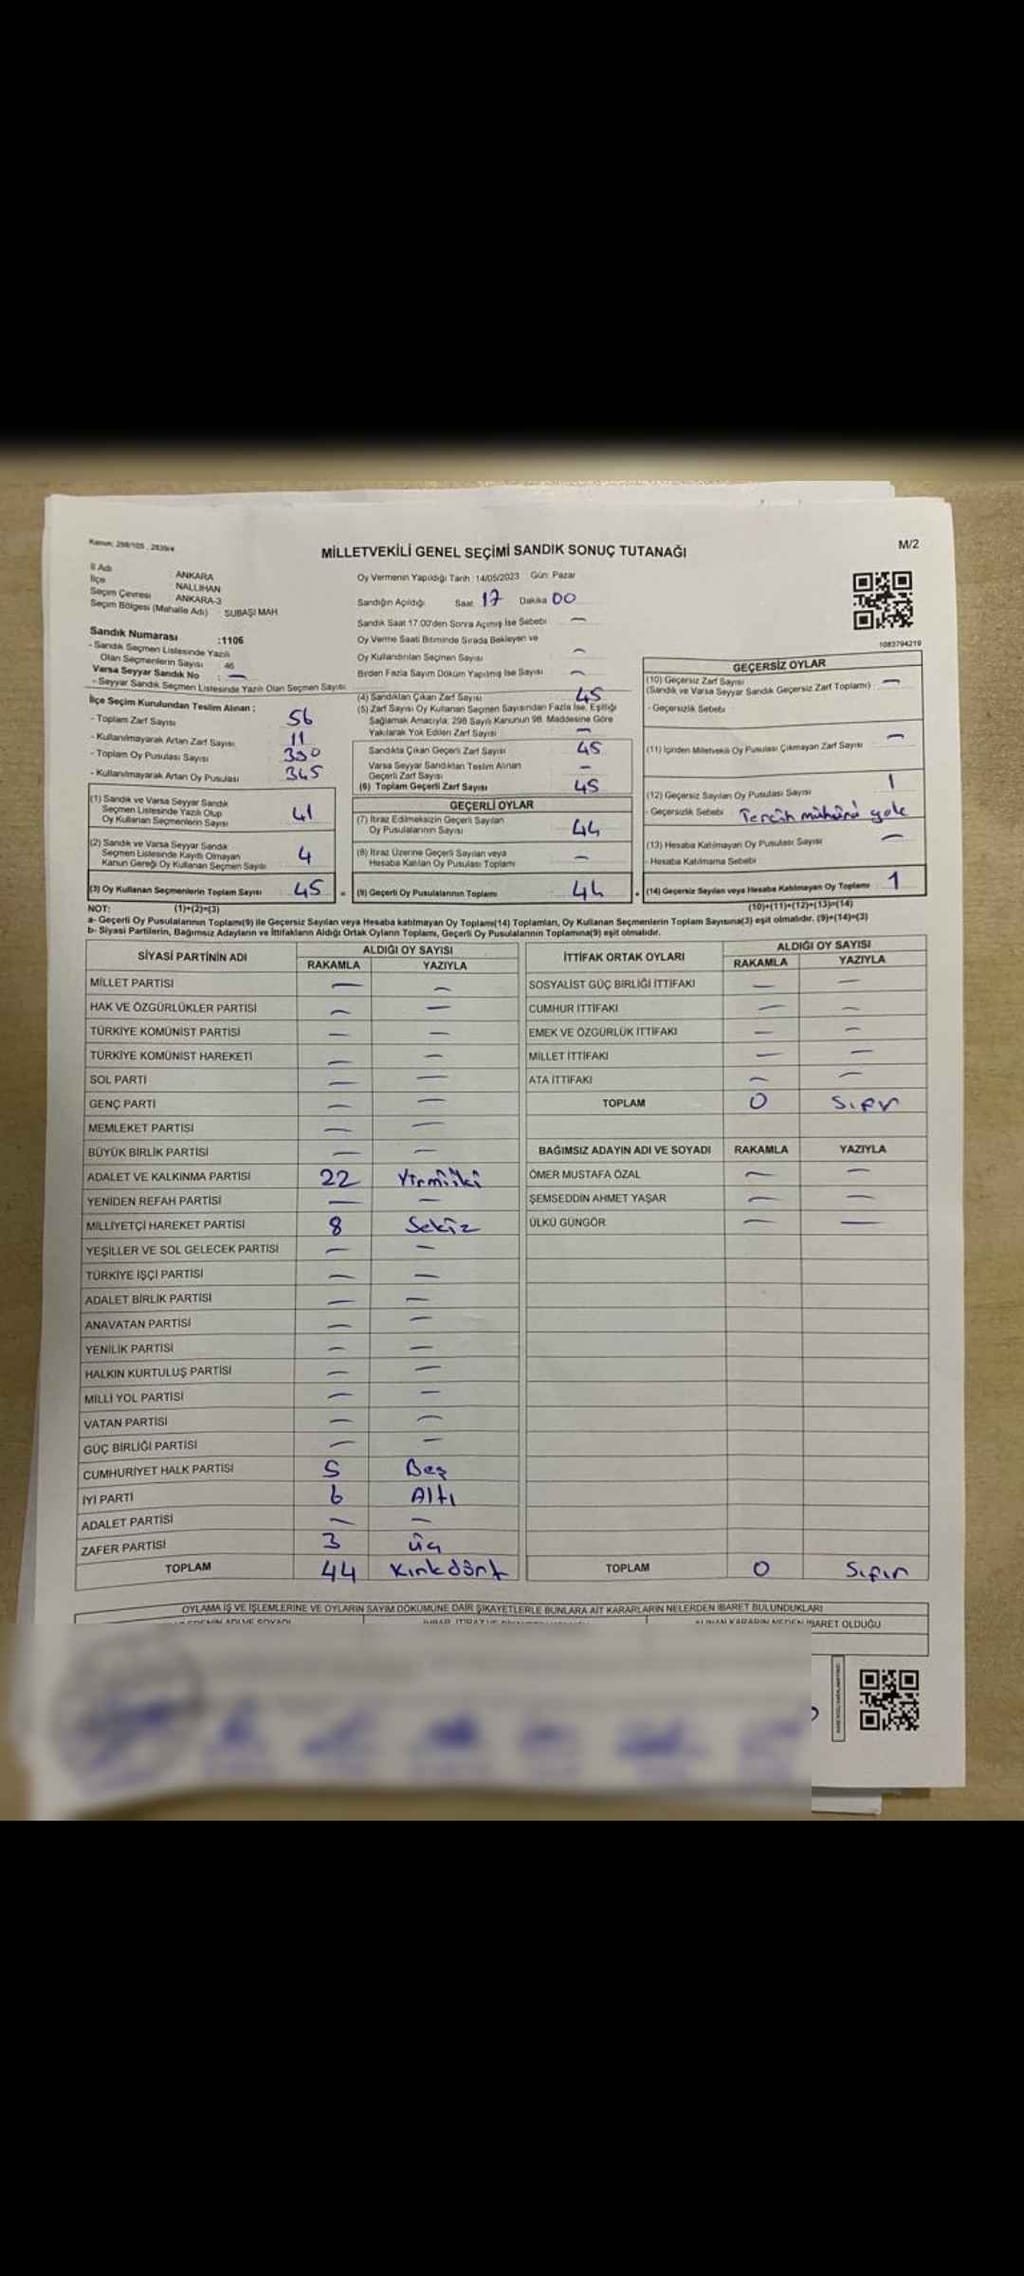 Kanun: 298/105, 2839/
M/2
MİLLETVEKİLİ GENEL SEÇİMİ SANDIK SONUÇ TUTANAĞI
İl Adı : ANKARA
İlçe : NALLIHAN
Seçim Çevresi : ANKARA-3
Seçim Bölgesi (Mahalle Adı) : SUBAŞI MAH
Sandık Numarası :1106
- Sandık Seçmen Listesinde Yazılı
Olan Seçmenlerin Sayısı 46
Varsa Seyyar Sandık No : —
- Seyyar Sandık Seçmen Listesinde Yazılı Olan Seçmen Sayısı
Oy Vermenin Yapıldığı Tarih : 14/05/2023 Gün: Pazar
Sandığın Açıldığı Saat 17 Dakika 00
Sandık Saat 17.00'den Sonra Açılmış İse Sebebi —
Oy Verme Saati Bitiminde Sırada Bekleyen ve
Oy Kullandırılan Seçmen Sayısı —
Birden Fazla Sayım Döküm Yapılmış İse Sayısı —
1083794210
İlçe Seçim Kurulundan Teslim Alınan :
- Toplam Zarf Sayısı 56
- Kullanılmayarak Artan Zarf Sayısı 11
- Toplam Oy Pusulası Sayısı
- Kullanılmayarak Artan Oy Pusulası 345
(1) Sandık ve Varsa Seyyar Sandık
Seçmen Listesinde Yazılı Olup
Oy Kullanan Seçmenlerin Sayısı 41
(2) Sandık ve Varsa Seyyar Sandık
Seçmen Listesinde Kayıtlı Olmayan
Kanun Gereği Oy Kullanan Seçmen Sayısı 4
(3) Oy Kullanan Seçmenlerin Toplam Sayısı 45 =
(4) Sandıktan Çıkan Zarf Sayısı 45
(5) Zarf Sayısı Oy Kullanan Seçmen Sayısından Fazla İse, Eşitliği
Sağlamak Amacıyla; 298 Sayılı Kanunun 98. Maddesine Göre
Yakılarak Yok Edilen Zarf Sayısı —
Sandıkta Çıkan Geçerli Zarf Sayısı 45
Varsa Seyyar Sandıktan Teslim Alınan
Geçerli Zarf Sayısı —
(6) Toplam Geçerli Zarf Sayısı 45
GEÇERLİ OYLAR
(7) İtiraz Edilmeksizin Geçerli Sayılan
Oy Pusulalarının Sayısı 44
(8) İtiraz Üzerine Geçerli Sayılan veya
Hesaba Katılan Oy Pusulası Toplamı —
(9) Geçerli Oy Pusulalarının Toplamı 44 +
GEÇERSİZ OYLAR
(10) Geçersiz Zarf Sayısı —
(Sandık ve Varsa Seyyar Sandık Geçersiz Zarf Toplamı)
- Geçersizlik Sebebi
(11) İçinden Milletvekili Oy Pusulası Çıkmayan Zarf Sayısı —
(12) Geçersiz Sayılan Oy Pusulası Sayısı 1
- Geçersizlik Sebebi Tercih mühürü yok
(13) Hesaba Katılmayan Oy Pusulası Sayısı —
- Hesaba Katılmama Sebebi
(14) Geçersiz Sayılan veya Hesaba Katılmayan Oy Toplamı 1
NOT: (1)+(2)=(3) (10)+(11)+(12)+(13)=(14)
a- Geçerli Oy Pusulalarının Toplamı(9) ile Geçersiz Sayılan veya Hesaba katılmayan Oy Toplamı(14) Toplamları, Oy Kullanan Seçmenlerin Toplam Sayısına(3) eşit olmalıdır. (9)+(14)=(3)
b- Siyasi Partilerin, Bağımsız Adayların ve İttifakların Aldığı Ortak Oyların Toplamı, Geçerli Oy Pusulalarının Toplamına(9) eşit olmalıdır.
SİYASİ PARTİNİN ADI ALDIĞI OY SAYISI
RAKAMLA YAZIYLA
MİLLET PARTİSİ — —
HAK VE ÖZGÜRLÜKLER PARTİSİ — —
TÜRKİYE KOMÜNİST PARTİSİ — —
TÜRKİYE KOMÜNİST HAREKETİ — —
SOL PARTİ — —
GENÇ PARTİ — —
MEMLEKET PARTİSİ — —
BÜYÜK BİRLİK PARTİSİ — —
ADALET VE KALKINMA PARTİSİ 22 Yirmiiki
YENİDEN REFAH PARTİSİ — —
MİLLİYETÇİ HAREKET PARTİSİ 8 Sekiz
YEŞİLLER VE SOL GELECEK PARTİSİ — —
TÜRKİYE İŞÇİ PARTİSİ — —
ADALET BİRLİK PARTİSİ — —
ANAVATAN PARTİSİ — —
YENİLİK PARTİSİ — —
HALKIN KURTULUŞ PARTİSİ — —
MİLLİ YOL PARTİSİ — —
VATAN PARTİSİ — —
GÜÇ BİRLİĞİ PARTİSİ — —
CUMHURİYET HALK PARTİSİ 5 Beş
İYİ PARTİ 6 Altı
ADALET PARTİSİ — —
ZAFER PARTİSİ 3 üç
TOPLAM 44 Kırkdört
İTTİFAK ORTAK OYLARI ALDIĞI OY SAYISI
RAKAMLA YAZIYLA
SOSYALİST GÜÇ BİRLİĞİ İTTİFAKI — —
CUMHUR İTTİFAKI — —
EMEK VE ÖZGÜRLÜK İTTİFAKI — —
MİLLET İTTİFAKI — —
ATA İTTİFAKI — —
TOPLAM 0 Sıfır
BAĞIMSIZ ADAYIN ADI VE SOYADI RAKAMLA YAZIYLA
ÖMER MUSTAFA ÖZAL — —
ŞEMSEDDİN AHMET YAŞAR — —
ÜLKÜ GÜNGÖR — —
TOPLAM 0 Sıfır
OYLAMA İŞ VE İŞLEMLERİNE VE OYLARIN SAYIM DÖKÜMÜNE DAİR ŞİKAYETLERLE BUNLARA AİT KARARLARIN NELERDEN İBARET BULUNDUKLARI
ALINAN KARARIN NEDEN İBARET OLDUĞU